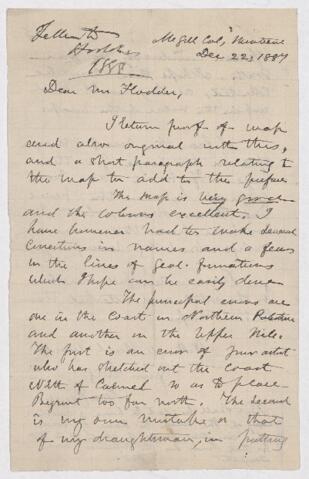 Hodder
1888
McGill Coll, Montreal
Dec 22, 1887
Dear Mr Hodder,
I return proof of map
and also original with this,
and a short paragraph relating to
the map to add to the preface
The map is very good
and the colours excellent. I
have however had to make several
corrections in names and a few
in the lines of geol. formations
which I hope can be easily done
The principal errors are
one in the coast in Northern Palestine
and another on the Upper Nile.
The first is an error of your artist
who has sketched out the coast
of Carmel so as to place
Beyrout too far north. The second
is my own mistake or that
of my draughtsman, in putting